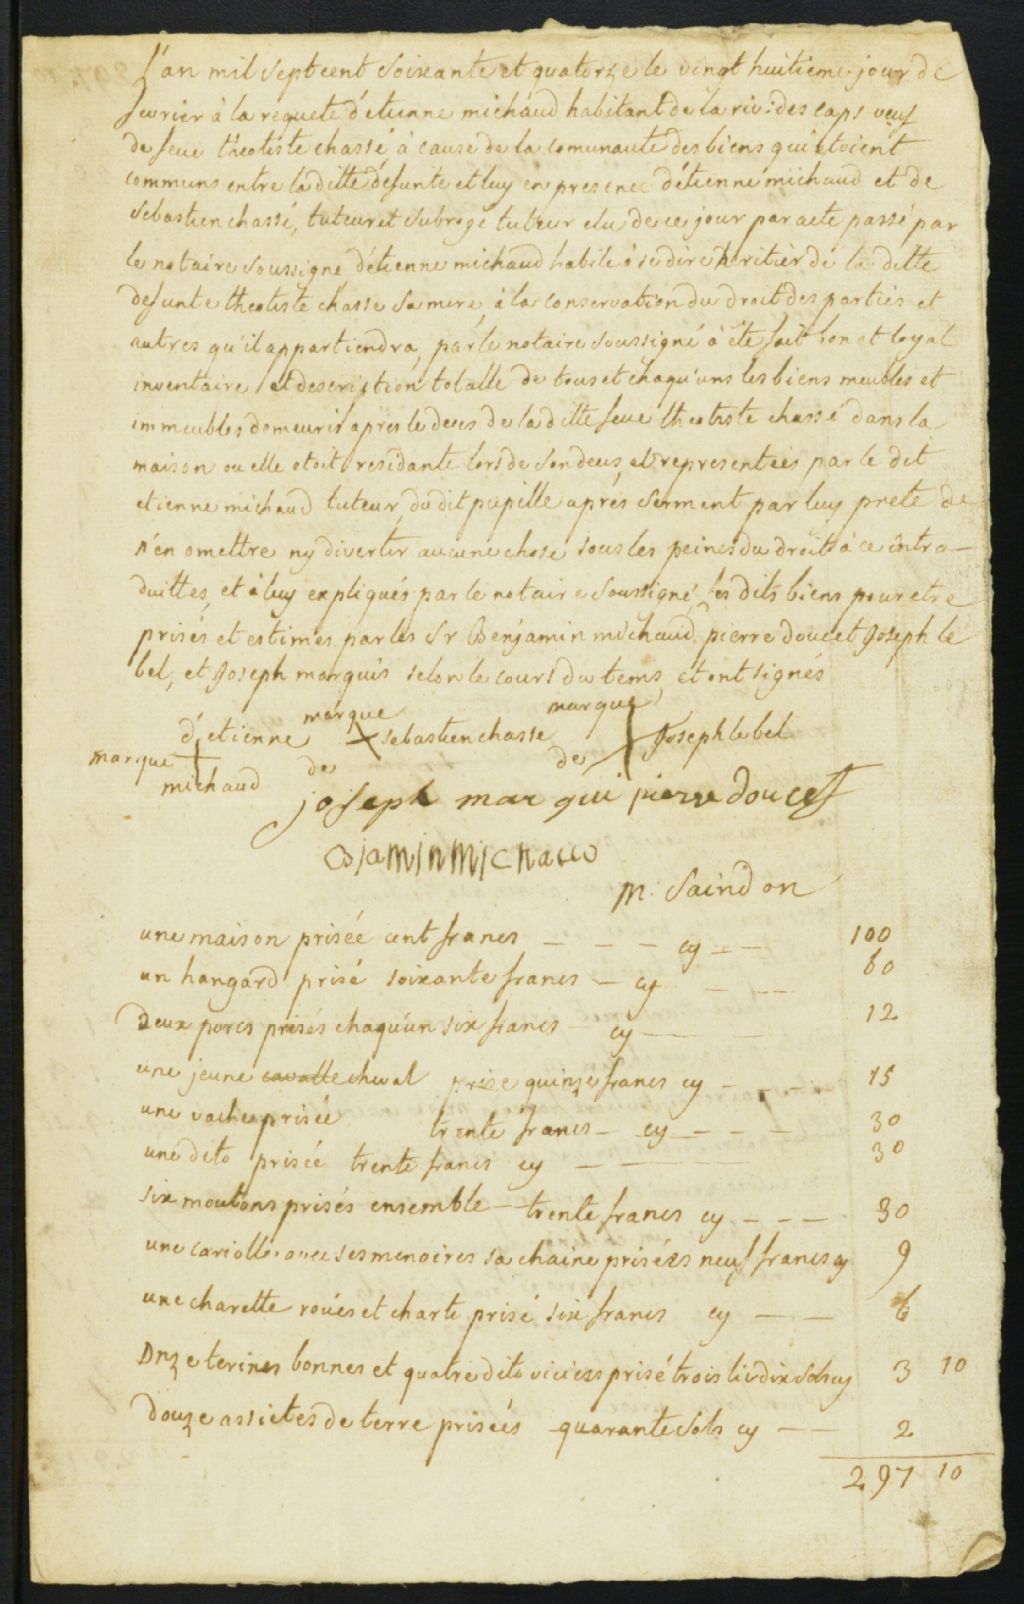 L'an mil septcent soixante et quatorze le vingt huitieme jour de
fevrier à la requete d'etienne michaud habitant de la riv: des caps veuf
de feue theotiste chassé à cause de la comunauté des biens qui etoient
communs entre la ditte defunte et luy en presence d'etienne michaud et de
Sebastien chassé, tuteur et subrogé tuteur elu de ce jour par acte passé par
le notaire soussigné d'etienne michaud habile à se dire heritier de la ditte
defunte theotiste chasse sa mere, à la conservation du droit des parties et
autres qu'il appartiendra, par le notaire soussigné à été fait bon et loyal
inventaire et description totalle de tous et chaqu'uns les biens meubles et
immeubles demeurés apres le deces de la ditte feue theotiste chassé dans la
maison ou elle etoit residante lors de son deces, et representées par le dit
etienne michaud tuteur du dit pupille aprés serment par luy preté de
n'en omettre ny divertir aucune chose sous les peines du droit à ce intro-
duittes, et à luy expliqués par le notaire soussigné, les dits biens pour etre
prisés et estimés par les Sr Benjamin michaud, pierre doucet Joseph le
bel, et Joseph marquis selon le cours du tems, et ont signés
marque d'etienne michaud
marque de sebastien chasse
marque de Joseph lebel
joseph mar qui pierre doucet
BjaMinMicHauD
M: Saindon
une maison prisée cent francs - - - cy - - 100
un hangard prisé soixante francs - cy - - 60
Deux porcs prisés chaqu'un six francs cy - - 12
une jeune cavalle cheval prisé quinze francs cy - - - 15
une vache prisée trente francs - cy - - - 30
une dito prisée trente francs cy - - 30
six moutons prisés ensemble - trente francs cy - - - 30
une cariolle avec ses menoires sa chaine prisées neuf francs cy 9
une charette roües et charti prisé six francs cy - - 6
Onze terines bonnes et quatre dito viciées prisé trois liv dix sols cy 3 10
Douze assietes de terre prisées quarante sols cy - - 2
297 10